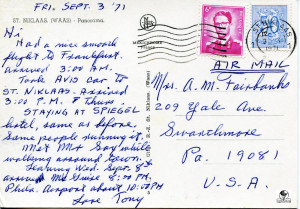 FRI. SEPT. 3 '71
ST. NIKLAAS (WAAS) - Panorama.
Hi
Had a nice smooth
flight to Frankfurt.
arrived 3:00 AM.
Took AVIS car to
ST. NIKLAS. Arrived
3:00 P.M. Thurs
STAYING AT SPIEGEL
hotel, same as before.
Same people running it.
Met Mr Gay while
walking around town.
Leaving Wed. Sept. 8th
around 8:00 P.M.
Phila. Airport about 10:00 PM
Love Tony
AIR MAIL
Mrs. A. M. Fairbanks
209 Yale Ave.
Swarthmore
Pa. 19081
U.S.A.